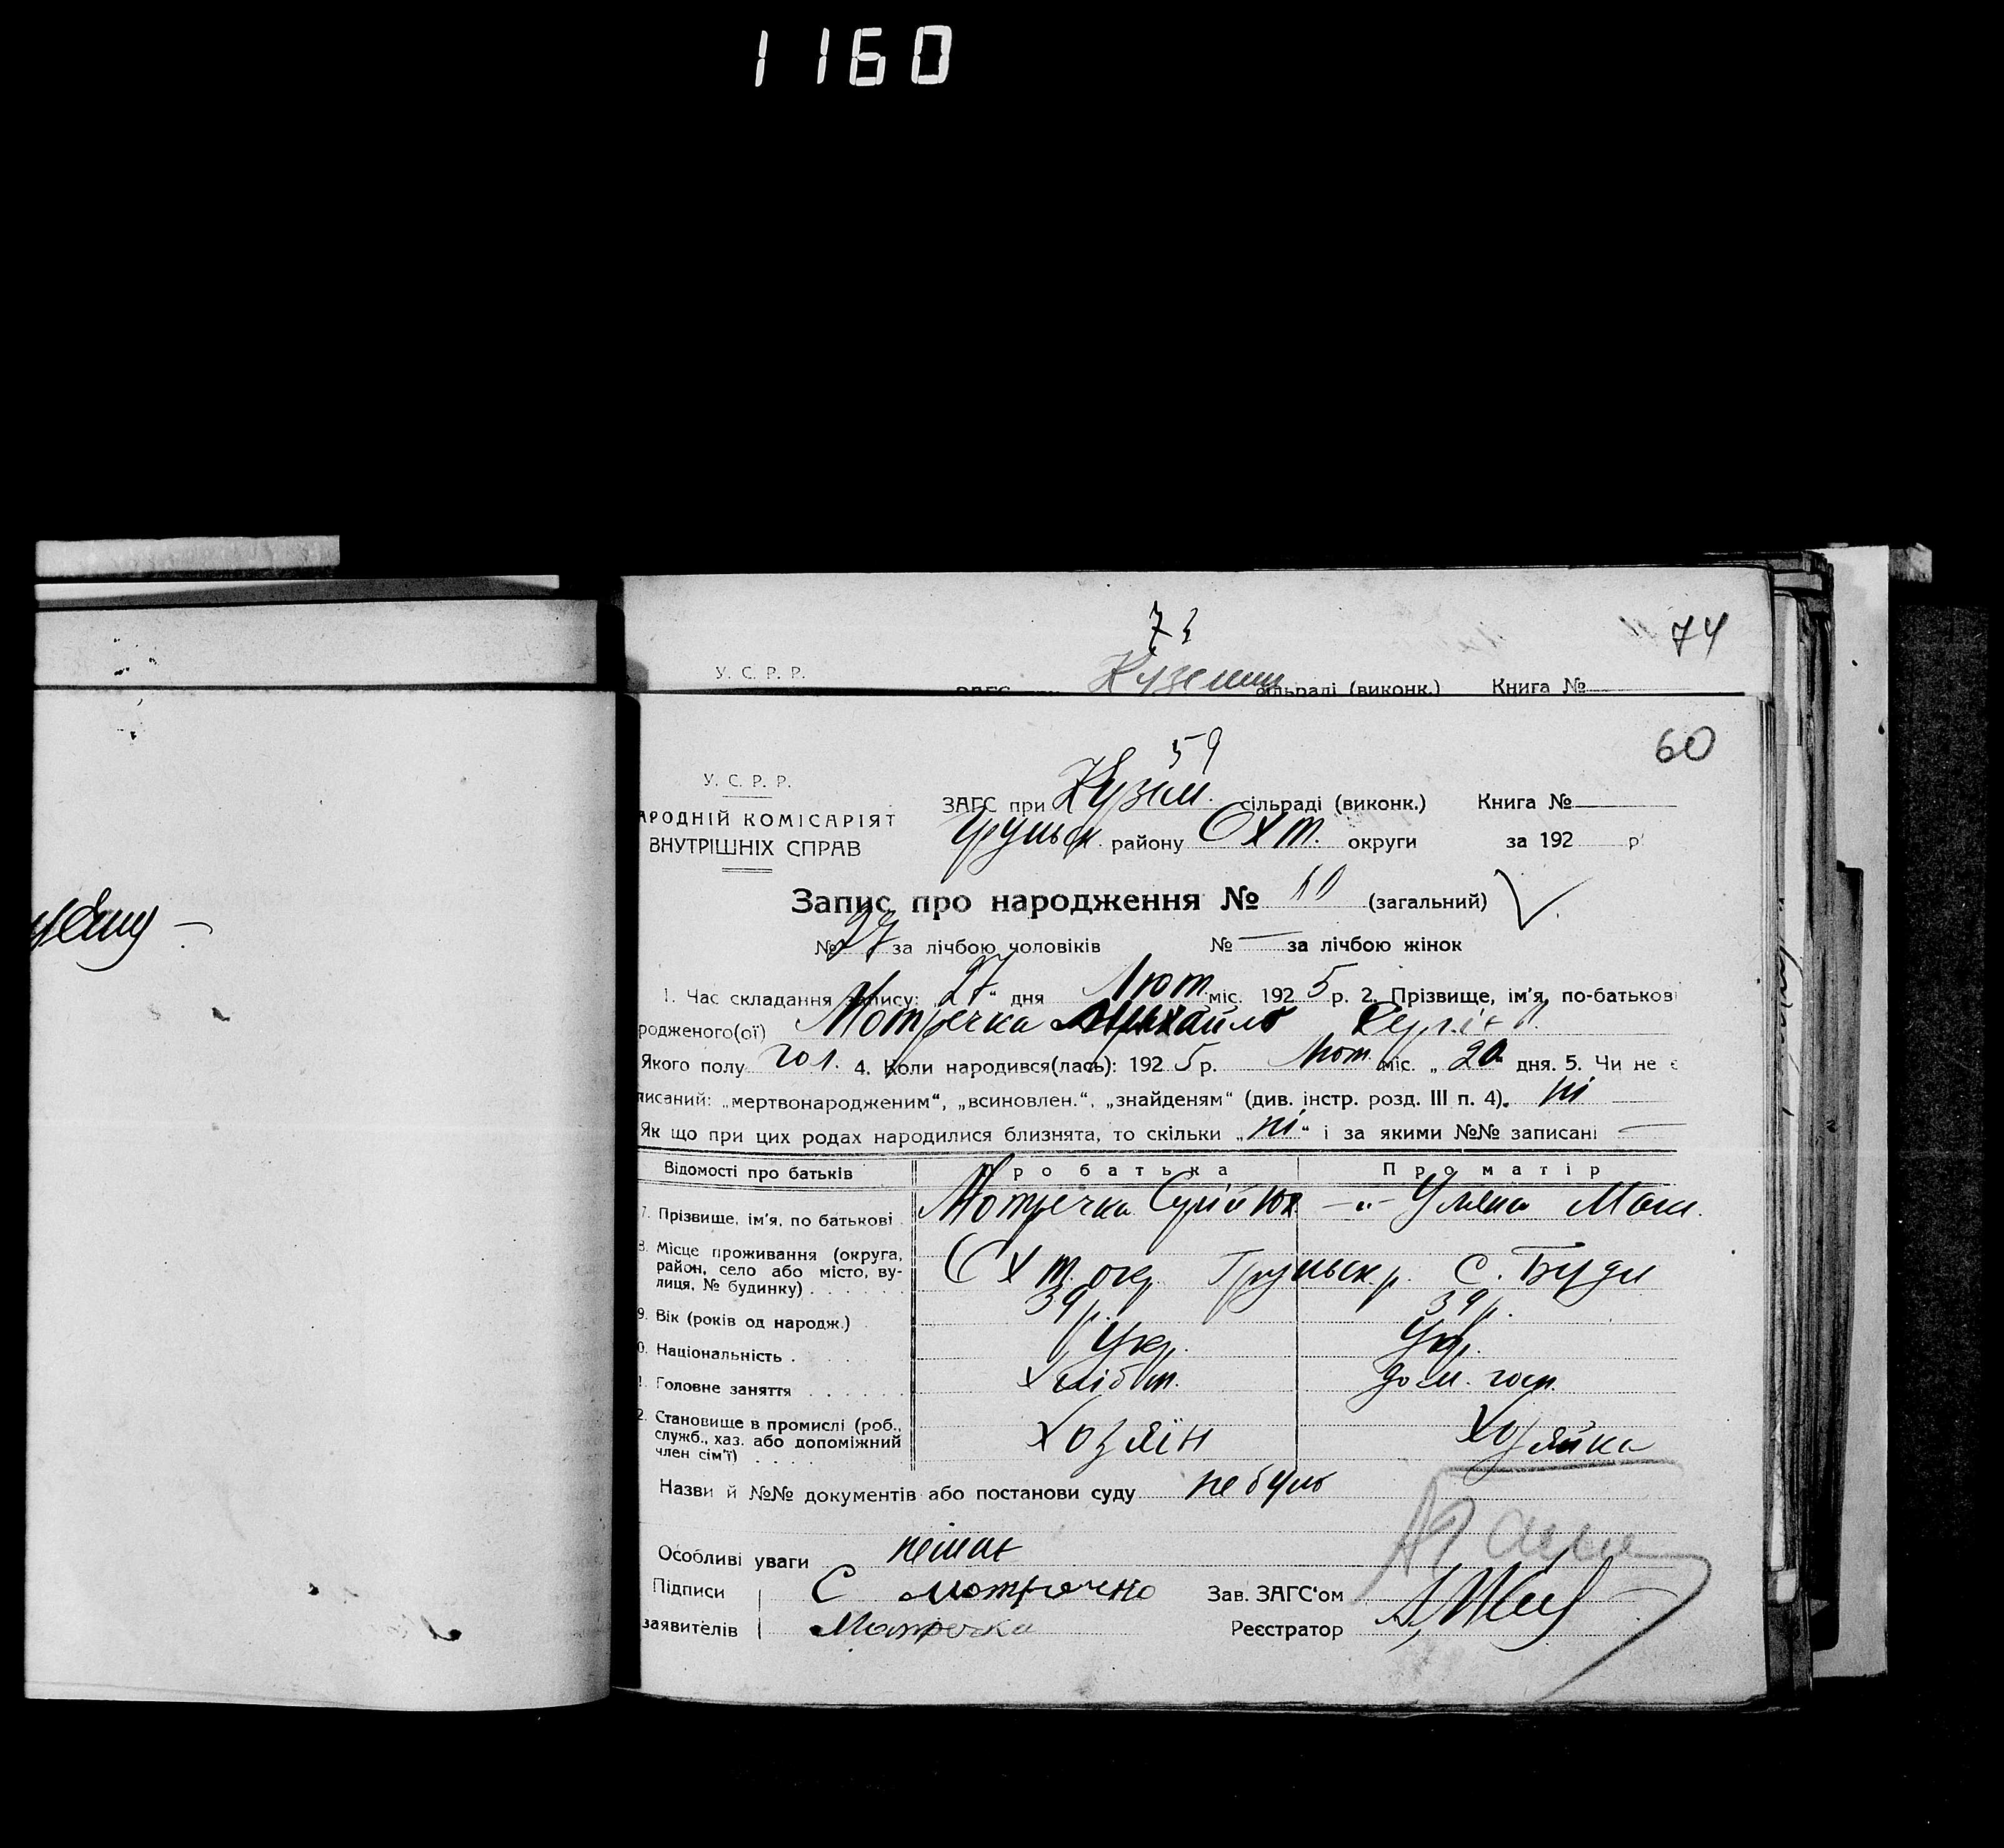 1160
73
74
У. С. Р. Р.
Куземин
ЗАГС при сільраді (виконк.) Книга №
59
60
У. С. Р. Р.
АРОДНІЙ КОМІСАРІЯТ
ВНУТРІШНІХ СПРАВ
ЗАГС при Кузем. сільраді (виконк.) Книга №
Груньск. району Охт. округи за 192 р
Запис про народження № (загальний)
№ 37 за лічбою чоловіків № — за лічбою жінок
1. Час складання запису: „27“ дня Лют. міс. 1925 р. 2. Прізвище, ім'я, по-батькові
родженого(ої) Мотречка Михайло
Якого полу чол. 4. Коли народився(лась): 1925 р. Лют. міс. „20 дня. 5. Чи не є
писаний: „мертвонародженим“, „всиновлен.“, „знайденям“ (див. інстр. розд. III п. 4). ні
Як що при цих родах народилися близнята, то скільки „ні“ і за якими №№ записані —
Відомості про батьків Про батька Про матір
7. Прізвище, ім'я, по батькові Мотречка Сергій —„— Уляна
8. Місце проживання (округа, район, село або місто, ву-
лиця, № будинку) Охт. окр. Груньск. р. С. Буди
9. Вік (років од народж.) 39 р. 39 р.
0. Національність Укр. Укр.
1. Головне заняття Хлібт. дом. госп.
2. Становище в промислі (роб.,
служб., хаз. або допоміжний
член сім'ї) Хозяїн Хозяйка
Назви й №№ документів або постанови суду не було
Особливі уваги немає
Підписи С Мотречко Зав. ЗАГС'ом
заявителів Мотречка Реєстратор